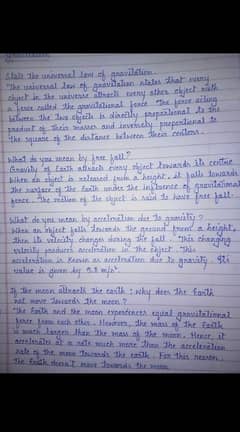 State the universal law of gravitation.
The universal law of gravitation states that every
object in the universe attracts every other object with
a force called the gravitational force. The force acting
between the two objects is directly proportional to the
product of their masses and inversely proportional to
the square of the distance between their centers.
What do you mean by free fall?
Gravity of Earth attracts every object towards its centre.
When an object is released from a height, it falls towards
the surface of the Earth under the influence of gravitational
force. The motion of the object is said to have free fall.
What do you mean by acceleration due to gravity?
When an object falls towards the ground from a height,
then its velocity changes during the fall. This changing
velocity produces acceleration in the object. This
acceleration is known as acceleration due to gravity. Its
value is given by 9.8 m/s².
If the moon attracts the earth, why does the Earth
not move towards the moon?
The Earth and the moon experiences equal gravitational
force from each other. However, the mass of the Earth
is much larger than the mass of the moon. Hence, it
accelerates at a rate much more than the acceleration
rate of the moon towards the Earth. For this reason,
the Earth doesn't move towards the moon.